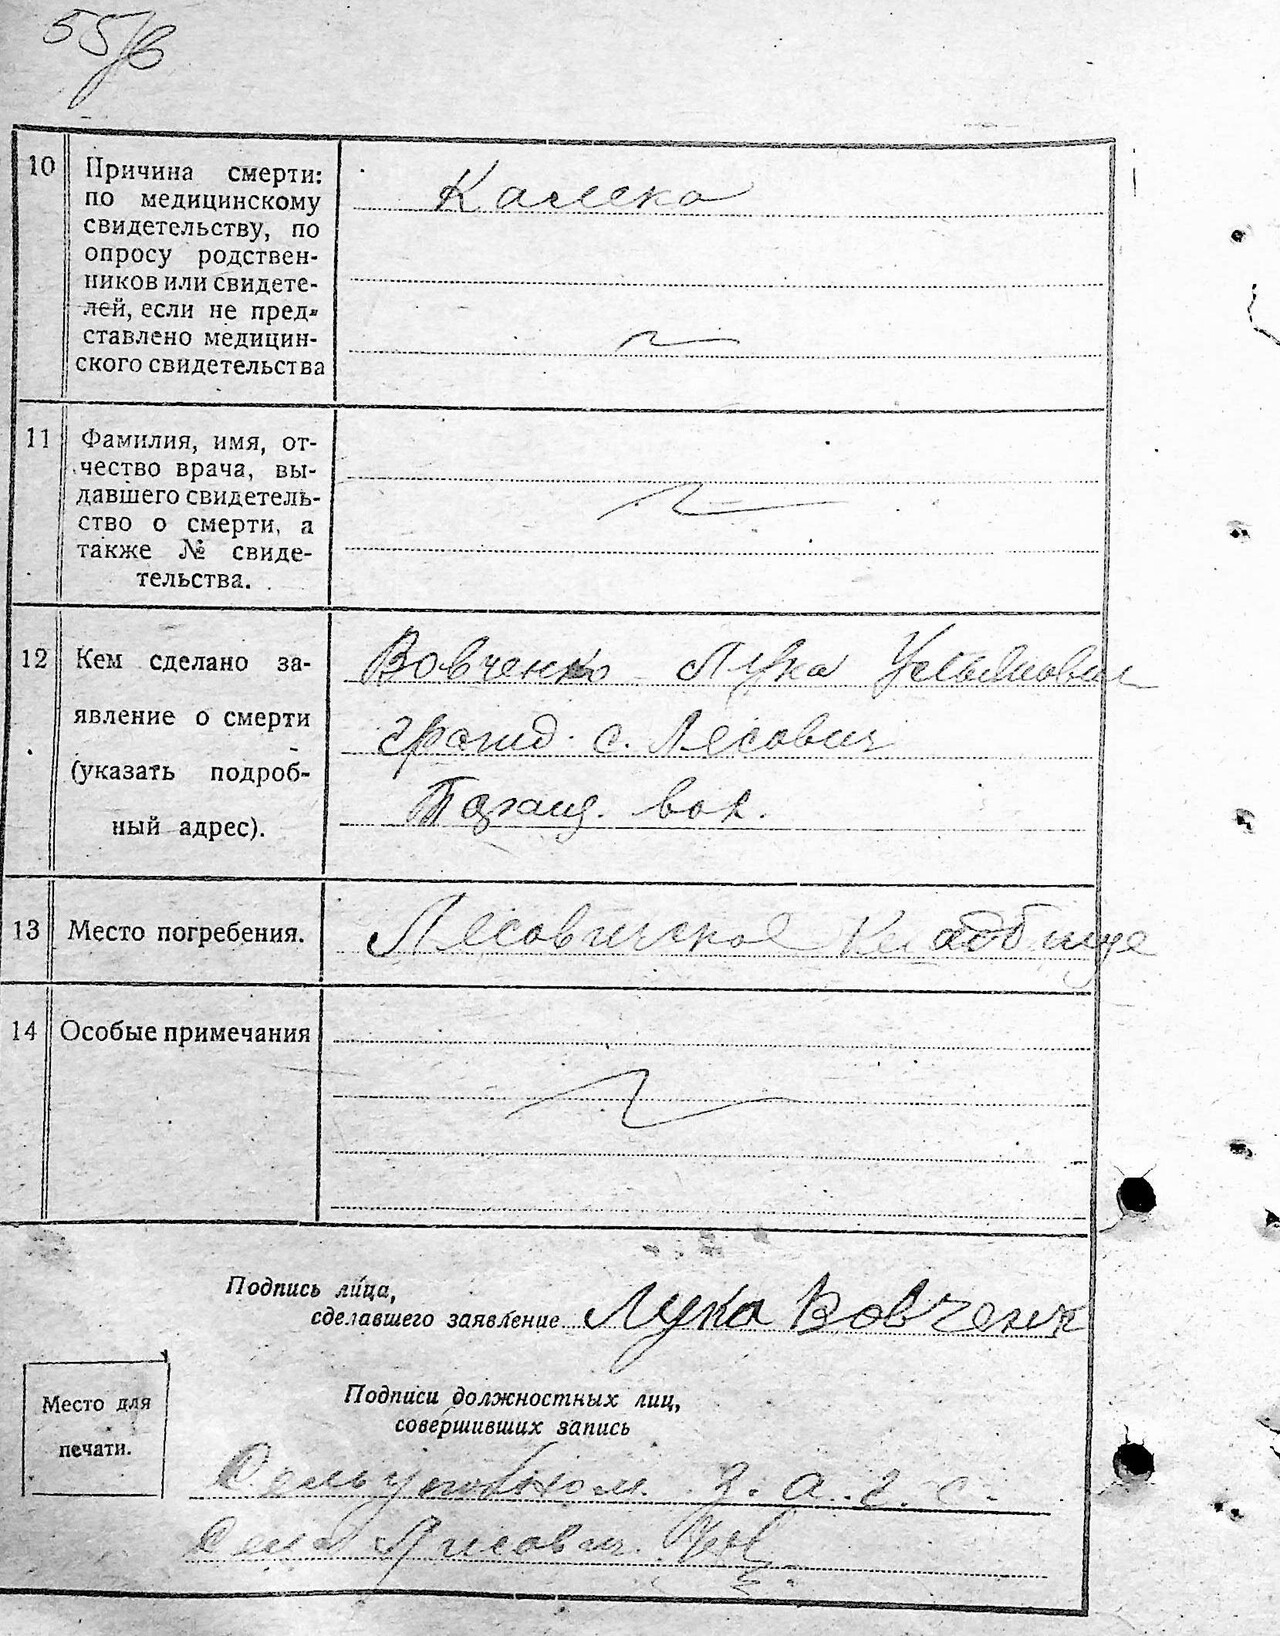 10 Причина смерти:
по медицинскому
свидетельству, по
опросу родствен-
ников или свидете-
лей, если не пред-
ставлено медицин-
ского свидетельства
Калека
11 Фамилия, имя, от-
чество врача, вы-
давшего свидетель-
ство о смерти, а
также № свиде-
тельства.
12 Кем сделано за-
явление о смерти
(указать подроб-
ный адрес).
Вовченко Лука
гражд. с. Лесович
вол.
13 Место погребения.
Лесовичское Кладбище
14 Особые примечания
Подпись лица,
сделавшего заявление Лука Вовченк
Место для
печати.
Подписи должностных лиц,
совершивших запись
з. а. г. с.